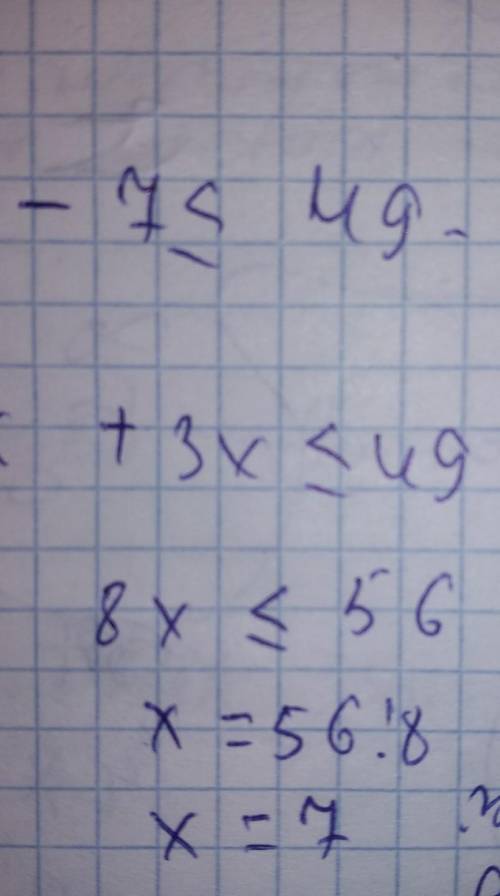 - 7 ≤ 49 -
+ 3x ≤ 49
8x ≤ 56
x = 56:8
x = 7